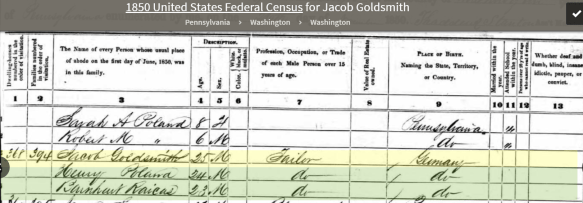 1850 United States Federal Census for Jacob Goldsmith
Pennsylvania > Washington > Washington
Dwelling-houses numbered in the order of visitation.
Families numbered in the order of visitation.
The Name of every Person whose usual place of abode on the first day of June, 1850, was in this family.
DESCRIPTION.
Age.
Sex.
Profession, Occupation, or Trade of each Male Person over 15 years of age.
Value of Real Estate owned.
PLACE OF BIRTH.
Naming the State, Territory, or Country.
Married within the year.
Attended School within the year.
Whether deaf and dumb, blind, insane, idiotic, pauper, or convict.
1 2 3 4 5 6 7 8 9 10 11 12 13
Sarah A Poland 8 F Pennsylvania "
Robert M " 6 M do "
368 394 Jacob Goldsmith 25 M Tailor Germany
Henry Poland 24 M do do
23 M do do